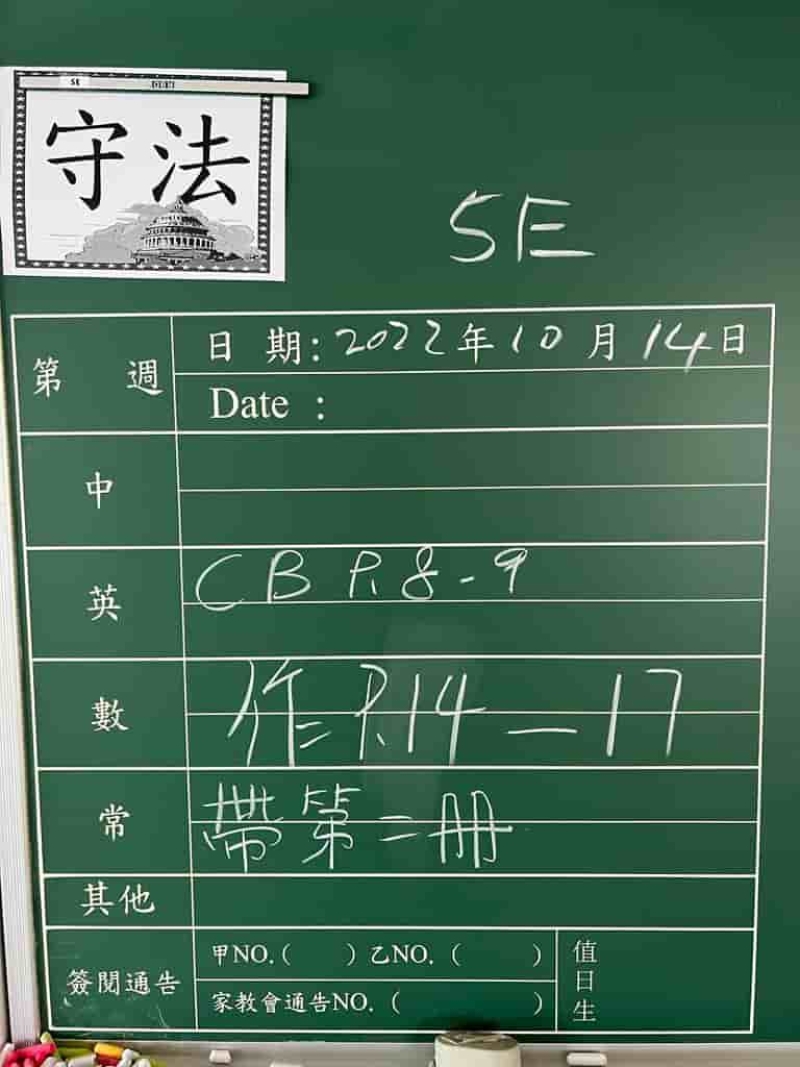 守法
5E
第 週
日 期: 2022年10月14日
Date :
中
英
CB P.8-9
數
作 P.14-17
常
帶第二冊
其他
簽閱通告
甲NO.( ) 乙NO. ( )
家教會通告NO. ( )
值日生